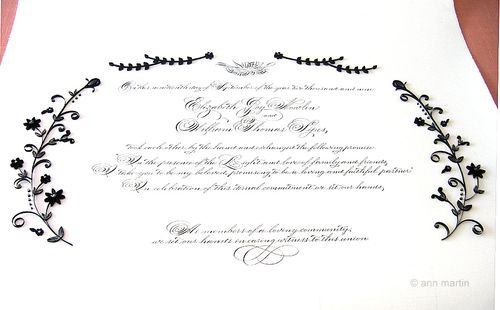 On this nineteenth day of September of the year two thousand and nine
Elizabeth Gay
and
William Thomas
took each other by the hand and exchanged the following promise
In the presence of the Light and love of family and friends,
I take you to be my beloved, promising to be a loving and faithful partner
In celebration of this eternal commitment we set our hands,
As members of a loving community,
we set our hands in caring witness to this union
© ann martin